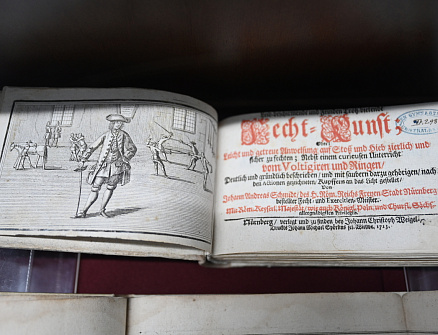 Fecht-Kunst,
Oder:
Leicht und getreue Anweisung auf Stoß und Hieb zierlich und
sicher zu fechten; Nebst einem curieusen Unterricht
vom Voltigiren und Ringen/
Deutlich und gründlich beschrieben/ und mit saubern darzu gehörigen/ nach
den Actionen gezeichneten Kupffern an das Licht gestellet/
Von
Johann Andreas Schmidt/ des H. Röm. Reichs Freyen Stadt Nürnberg
bestellter Fecht- und Exercitien-Meister.
Mit Röm. Kayserl. Majestät/ wie auch Königl. Poln. und Churfl. Sächs.
allergnädigsten Privilegiis.
Nürnberg/ verlegt und zu finden bey Johann Christoph Weigel.
Druckts Johann Michael Spörlins sel. Wittwe. 1713.